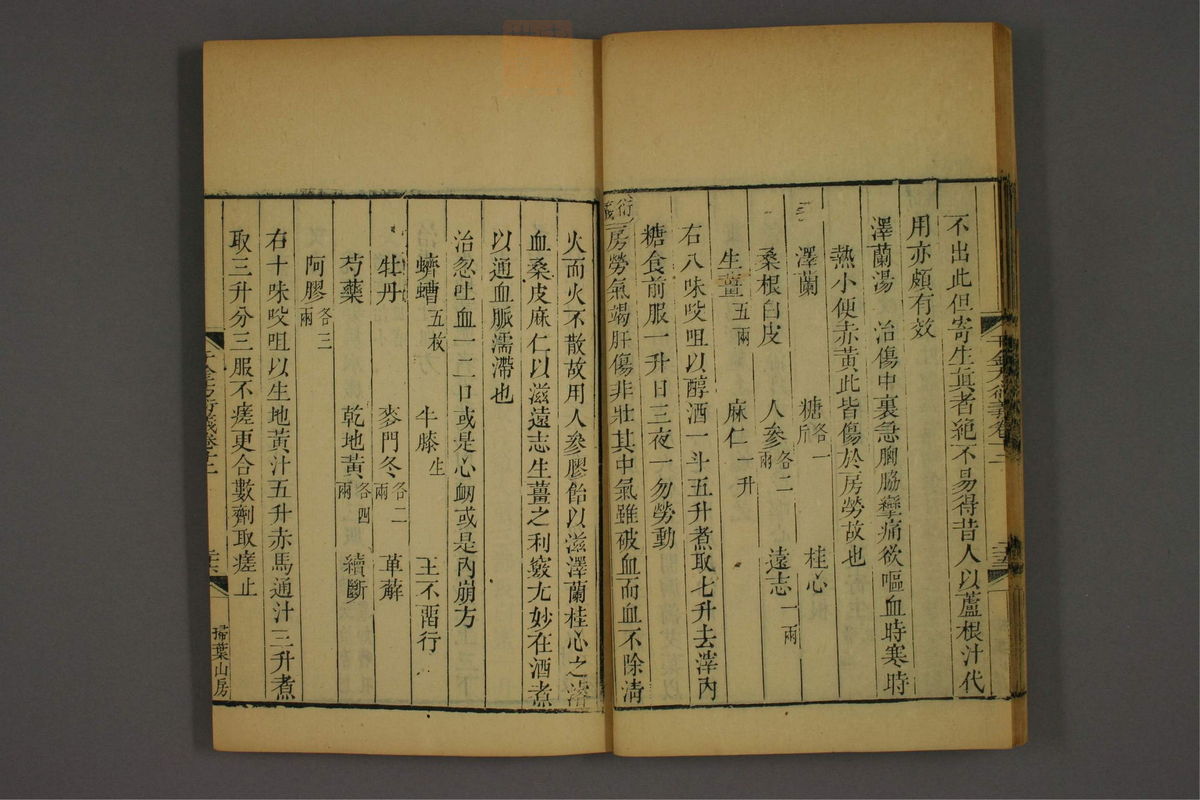 不出此但寄生眞者絶不易得昔人以蘆根汁代
用亦頗有效
澤蘭湯 治傷中裏急胸脇攣痛欲嘔血時寒時
熱小便赤黃此皆傷於房勞故也
澤蘭 糖各一斤 桂心
桑根白皮 人參各二兩 遠志一兩
生薑五兩 麻仁一升
右八味㕮咀以醇酒一斗五升煮取七升去滓內
糖食前服一升日三夜一勿勞動
衍義房勞氣竭肝傷非壯其中氣雖破血而血不除淸
火而火不散故用人參膠飴以滋澤蘭桂心之
血桑皮麻仁以滋遠志生薑之利竅尤妙在酒煮
以通血脈濡滯也
治忽吐血一二口或是心衂或是內崩方
蠐螬五枚 牛膝 王不留行
牡丹 麥門冬各二兩 萆薢
芍藥 乾地黃各四兩 續斷
阿膠各三兩
右十味㕮咀以生地黃汁五升赤馬通汁三升煮
取三升分三服不瘥更合數劑取瘥止
千金方衍義卷十二
掃葉山房